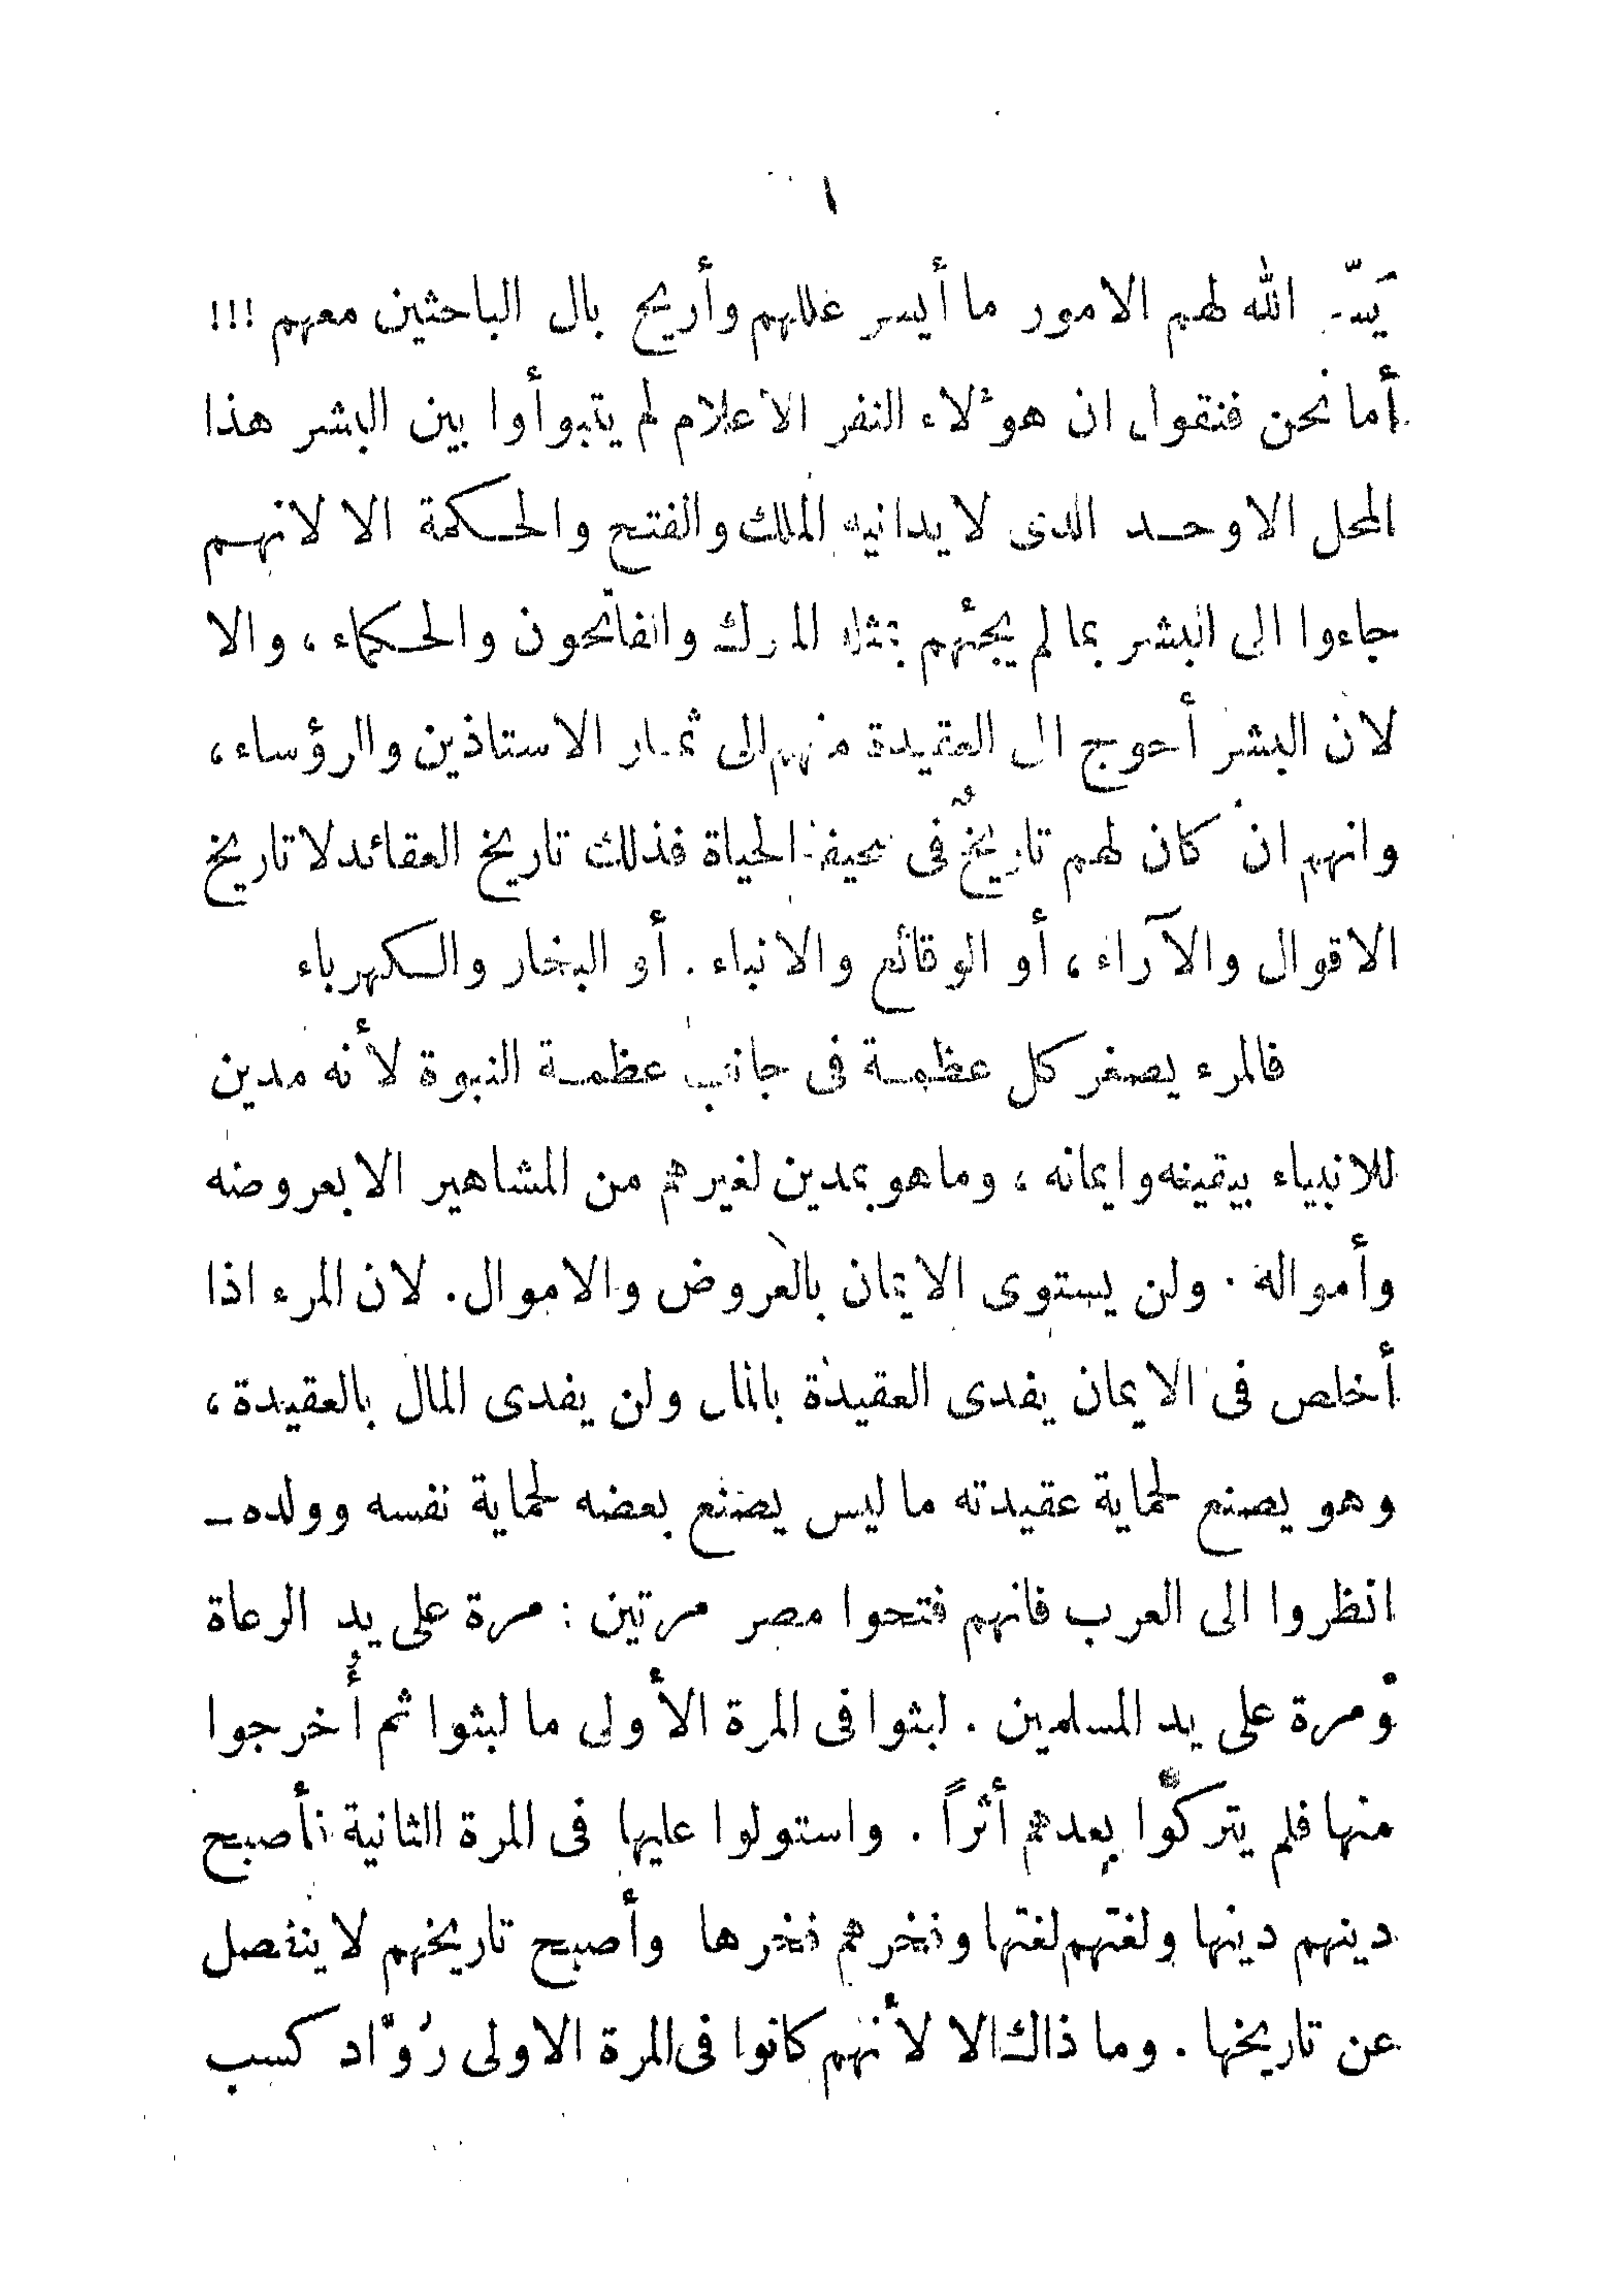 ١
الله لهم الامور ما أيسر عللهم وأريح بال الباحثين معهم !!!
أما نحن فنقول ان هؤلاء النفر الأعلام لم يتبوأوا بين البشر هذا
المحل الاوحد الذى لا يدانيه الملك والفتح والحكمة الا لانهم
جاءوا الى البشر بما لم يجئهم بمثله الملوك والفاتحون والحكماء ، والا
لان البشر أحوج الى العقيدة منهم الى ثمار الاستاذين والرؤساء ،
وانهم ان كان لهم تاريخٌ فى صحيفة الحياة فذلك تاريخ العقائد لا تاريخ
الاقوال والآراء ، أو الوقائع والانباء . أو البخار والكهرباء
فالمرء يصغر كل عظمة فى جانب عظمة النبوة لأنه مدين
للانبياء بيقينه وايمانه ، وما هو بمدين لغيرهم من المشاهير الا بعروضه
وأمواله . ولن يستوى الايمان بالعروض والاموال . لان المرء اذا
أخلص فى الايمان يفدى العقيدة بالمال ولن يفدى المال بالعقيدة ،
وهو يصنع لحماية عقيدته ما ليس يصنع بعضه لحماية نفسه وولده ـ
انظروا الى العرب فانهم فتحوا مصر مرتين : مرة على يد الرعاة
ومرة على يد المسلمين . لبثوا فى المرة الأولى ما لبثوا ثم أُخرجوا
منها فلم يتركوا بعدهم أثراً . واستولوا عليها فى المرة الثانية فأصبح
دينهم دينها ولغتهم لغتها وفخرهم فخرها وأصبح تاريخهم لا ينفصل
عن تاريخها . وما ذاك الا لأنهم كانوا فى المرة الاولى رُوّاد كسب